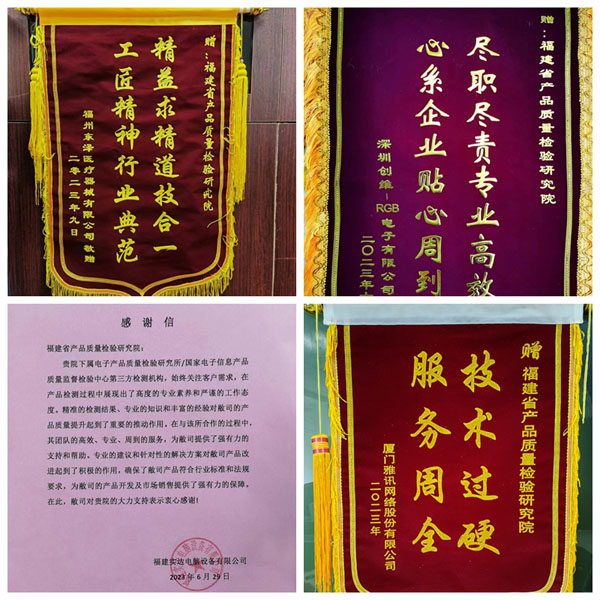 赠：福建省产品质量检验研究院
精益求精道技合一
工匠精神行业典范
福州东泽医疗器械有限公司敬赠
二零二三年九日
赠：福建省产品质量检验研究院
尽职尽责专业高效
心系企业贴心周到
深圳创维-RGB电子有限公司
二〇二三年
感谢信
福建省产品质量检验研究院：
贵院下属电子产品质量检验研究所/国家电子信息产品
质量监督检验中心第三方检测机构，始终关注客户需求，在
产品检测过程中展现出了高度的专业素养和严谨的工作态
度。精准的检测结果、专业的知识和丰富的经验对敝司的产
品质量提升起到了重要的推动作用。在与该所合作的过程中，
其团队的高效、专业、周到的服务，为敝司提供了强有力的
支持和帮助。专业的建议和针对性的解决方案对敝司产品改
进起到了积极的作用，确保了敝司产品符合行业标准和法规
要求，为敝司的产品开发及市场销售提供了强有力的保障。
在此，敝司对贵院的大力支持表示衷心感谢！
福建实达电脑设备有限公司
2023年6月29日
赠 福建省产品质量检验研究院
技术过硬
服务周全
厦门雅讯网络股份有限公司
二〇二三年